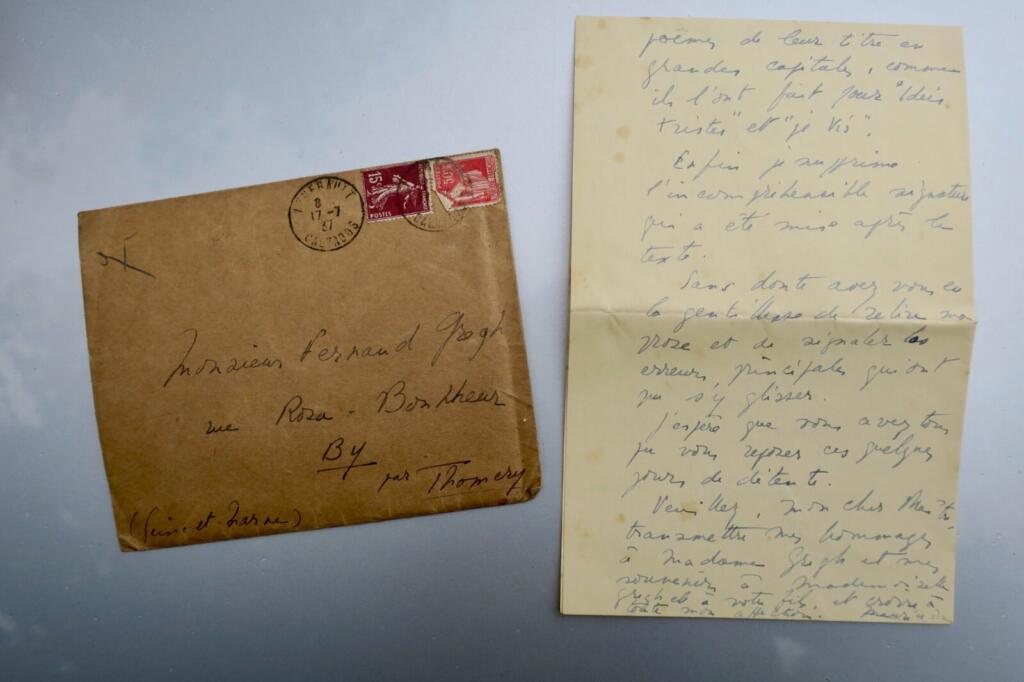 8
17-7
37
CALVADOS
15c
POSTES
Monsieur Fernand Gregh
rue Rosa-Bonheur
By
par Thomery
(Seine-et-Marne)
poèmes de leur titre en
grandes capitales, comme
ils l'ont fait pour "
tristes" et "je vis".
Enfin je supprime
l'incompréhensible signature
qui a été mise après le
texte.
Sans doute avez vous eu
la gentillesse de relire ma
prose et de signaler les
erreurs principales qui ont
pu s'y glisser.
J'espère que vous avez tous
pu vous reposer ces quelques
jours de détente.
Veuillez, mon cher Maître,
transmettre mes hommages
à madame Gregh et mes
souvenirs à mademoiselle
Gregh et à votre fils, et croire à
toute mon affection.